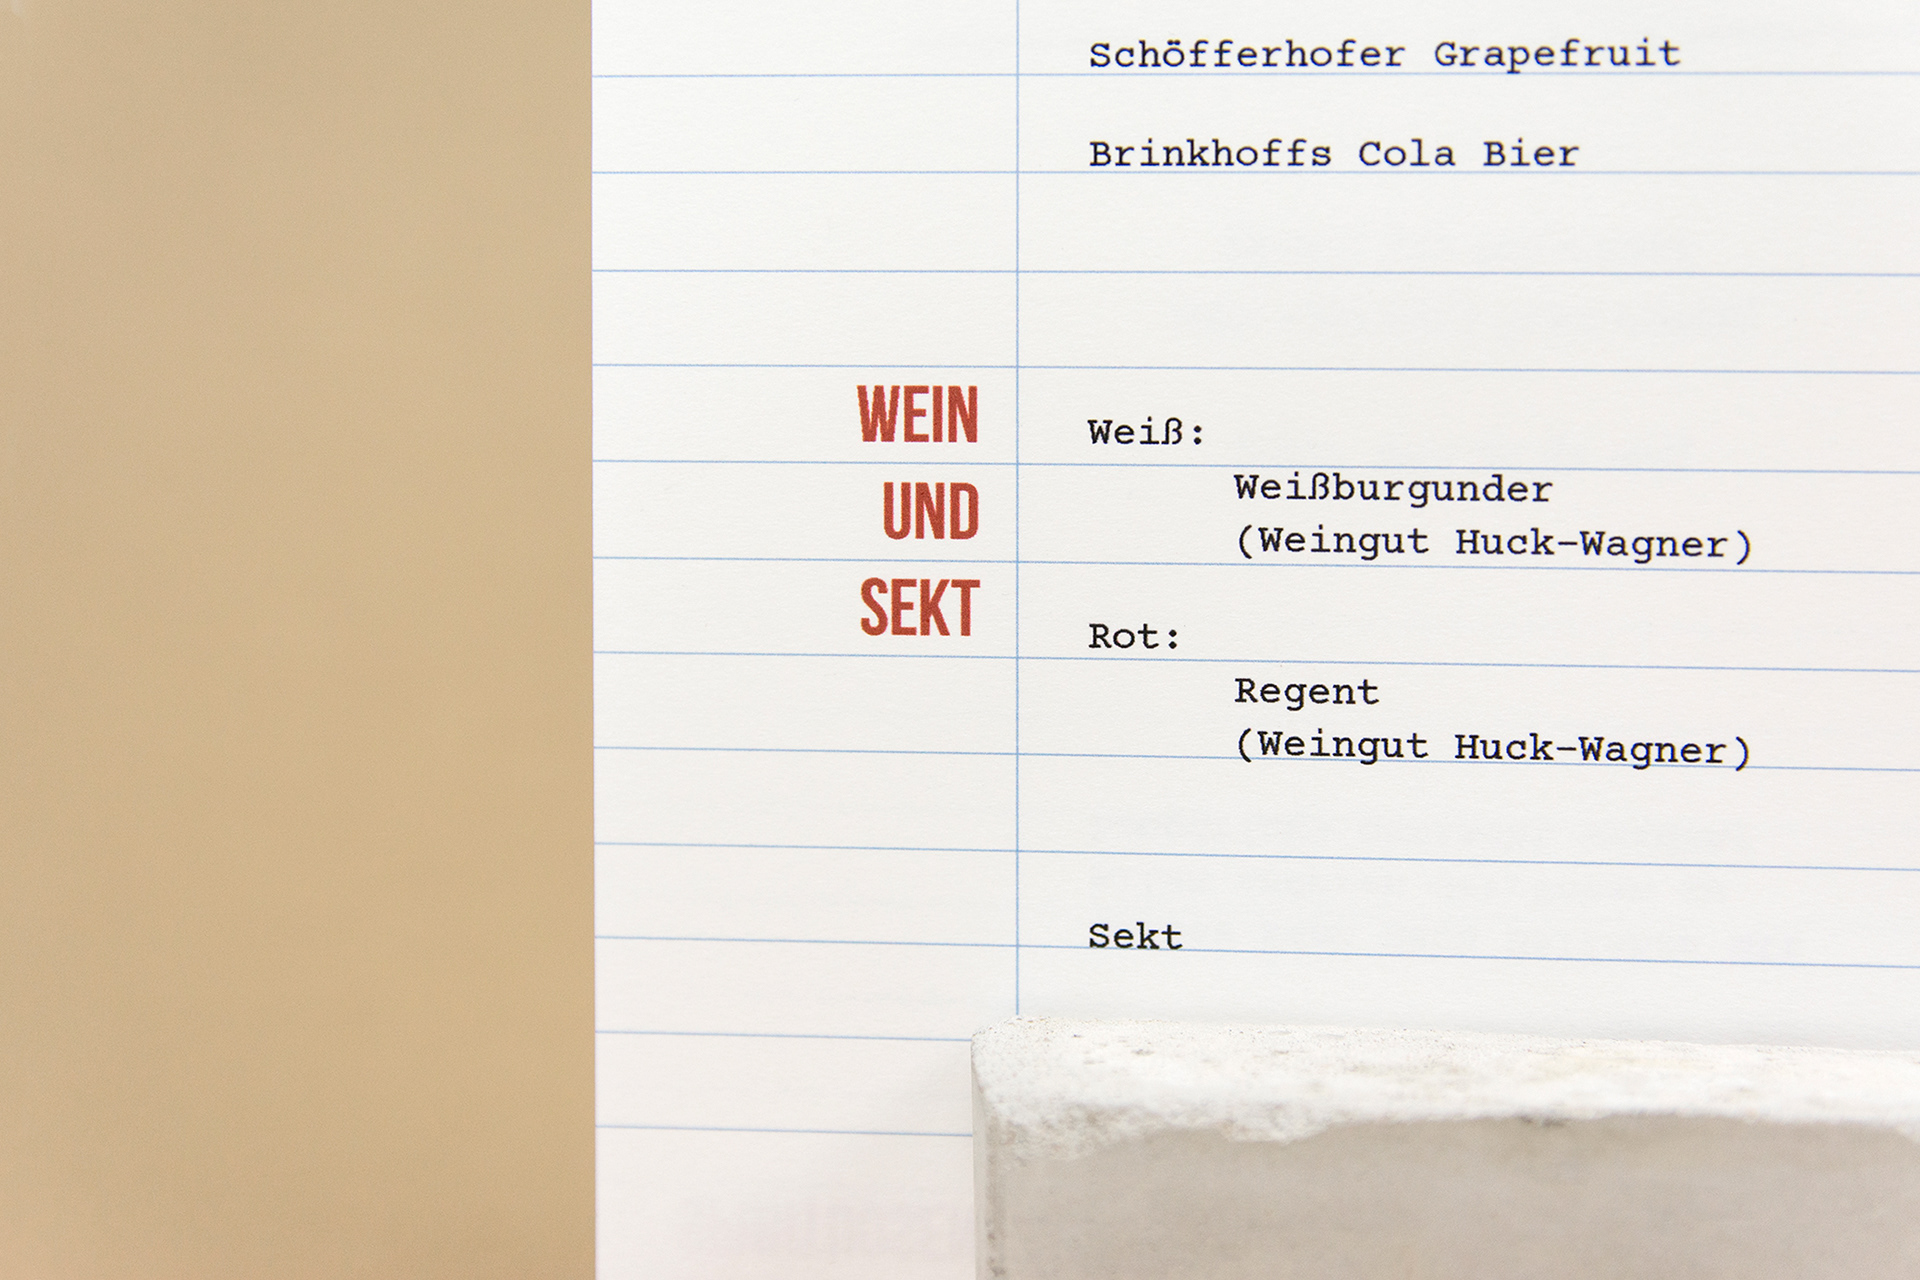 Schöfferhofer Grapefruit
Brinkhoffs Cola Bier
WEIN
UND
SEKT
Weiß:
Weißburgunder
(Weingut Huck-Wagner)
Rot:
Regent
(Weingut Huck-Wagner)
Sekt